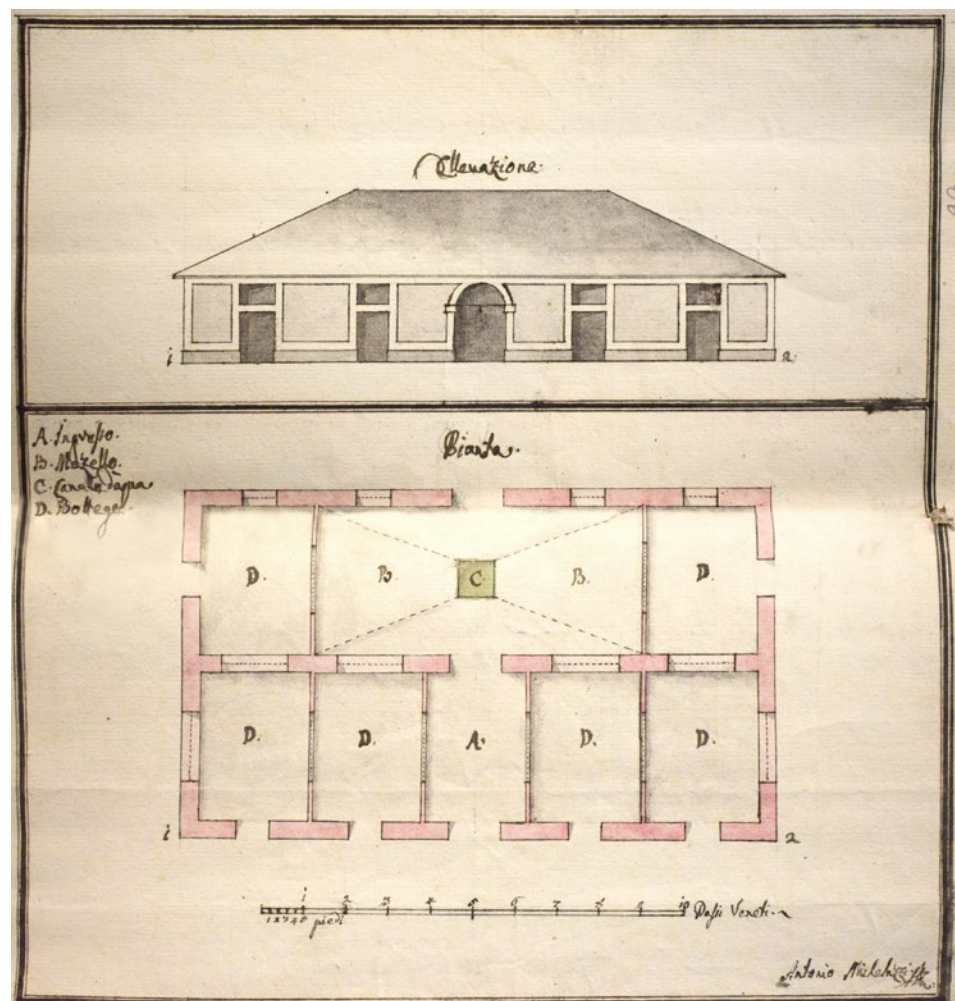 Ellevazione.
1 2.
A. Ingresso.
B. Mazello.
C. Canal d'aqua
D. Bottege.
Pianta.
D. B. C B. D.
D. D. A. D. D.
1 2
1 2 3 4 5 6 7 8 9 10 Passi Veneti
1 2 3 4 5 piedi
Antonio